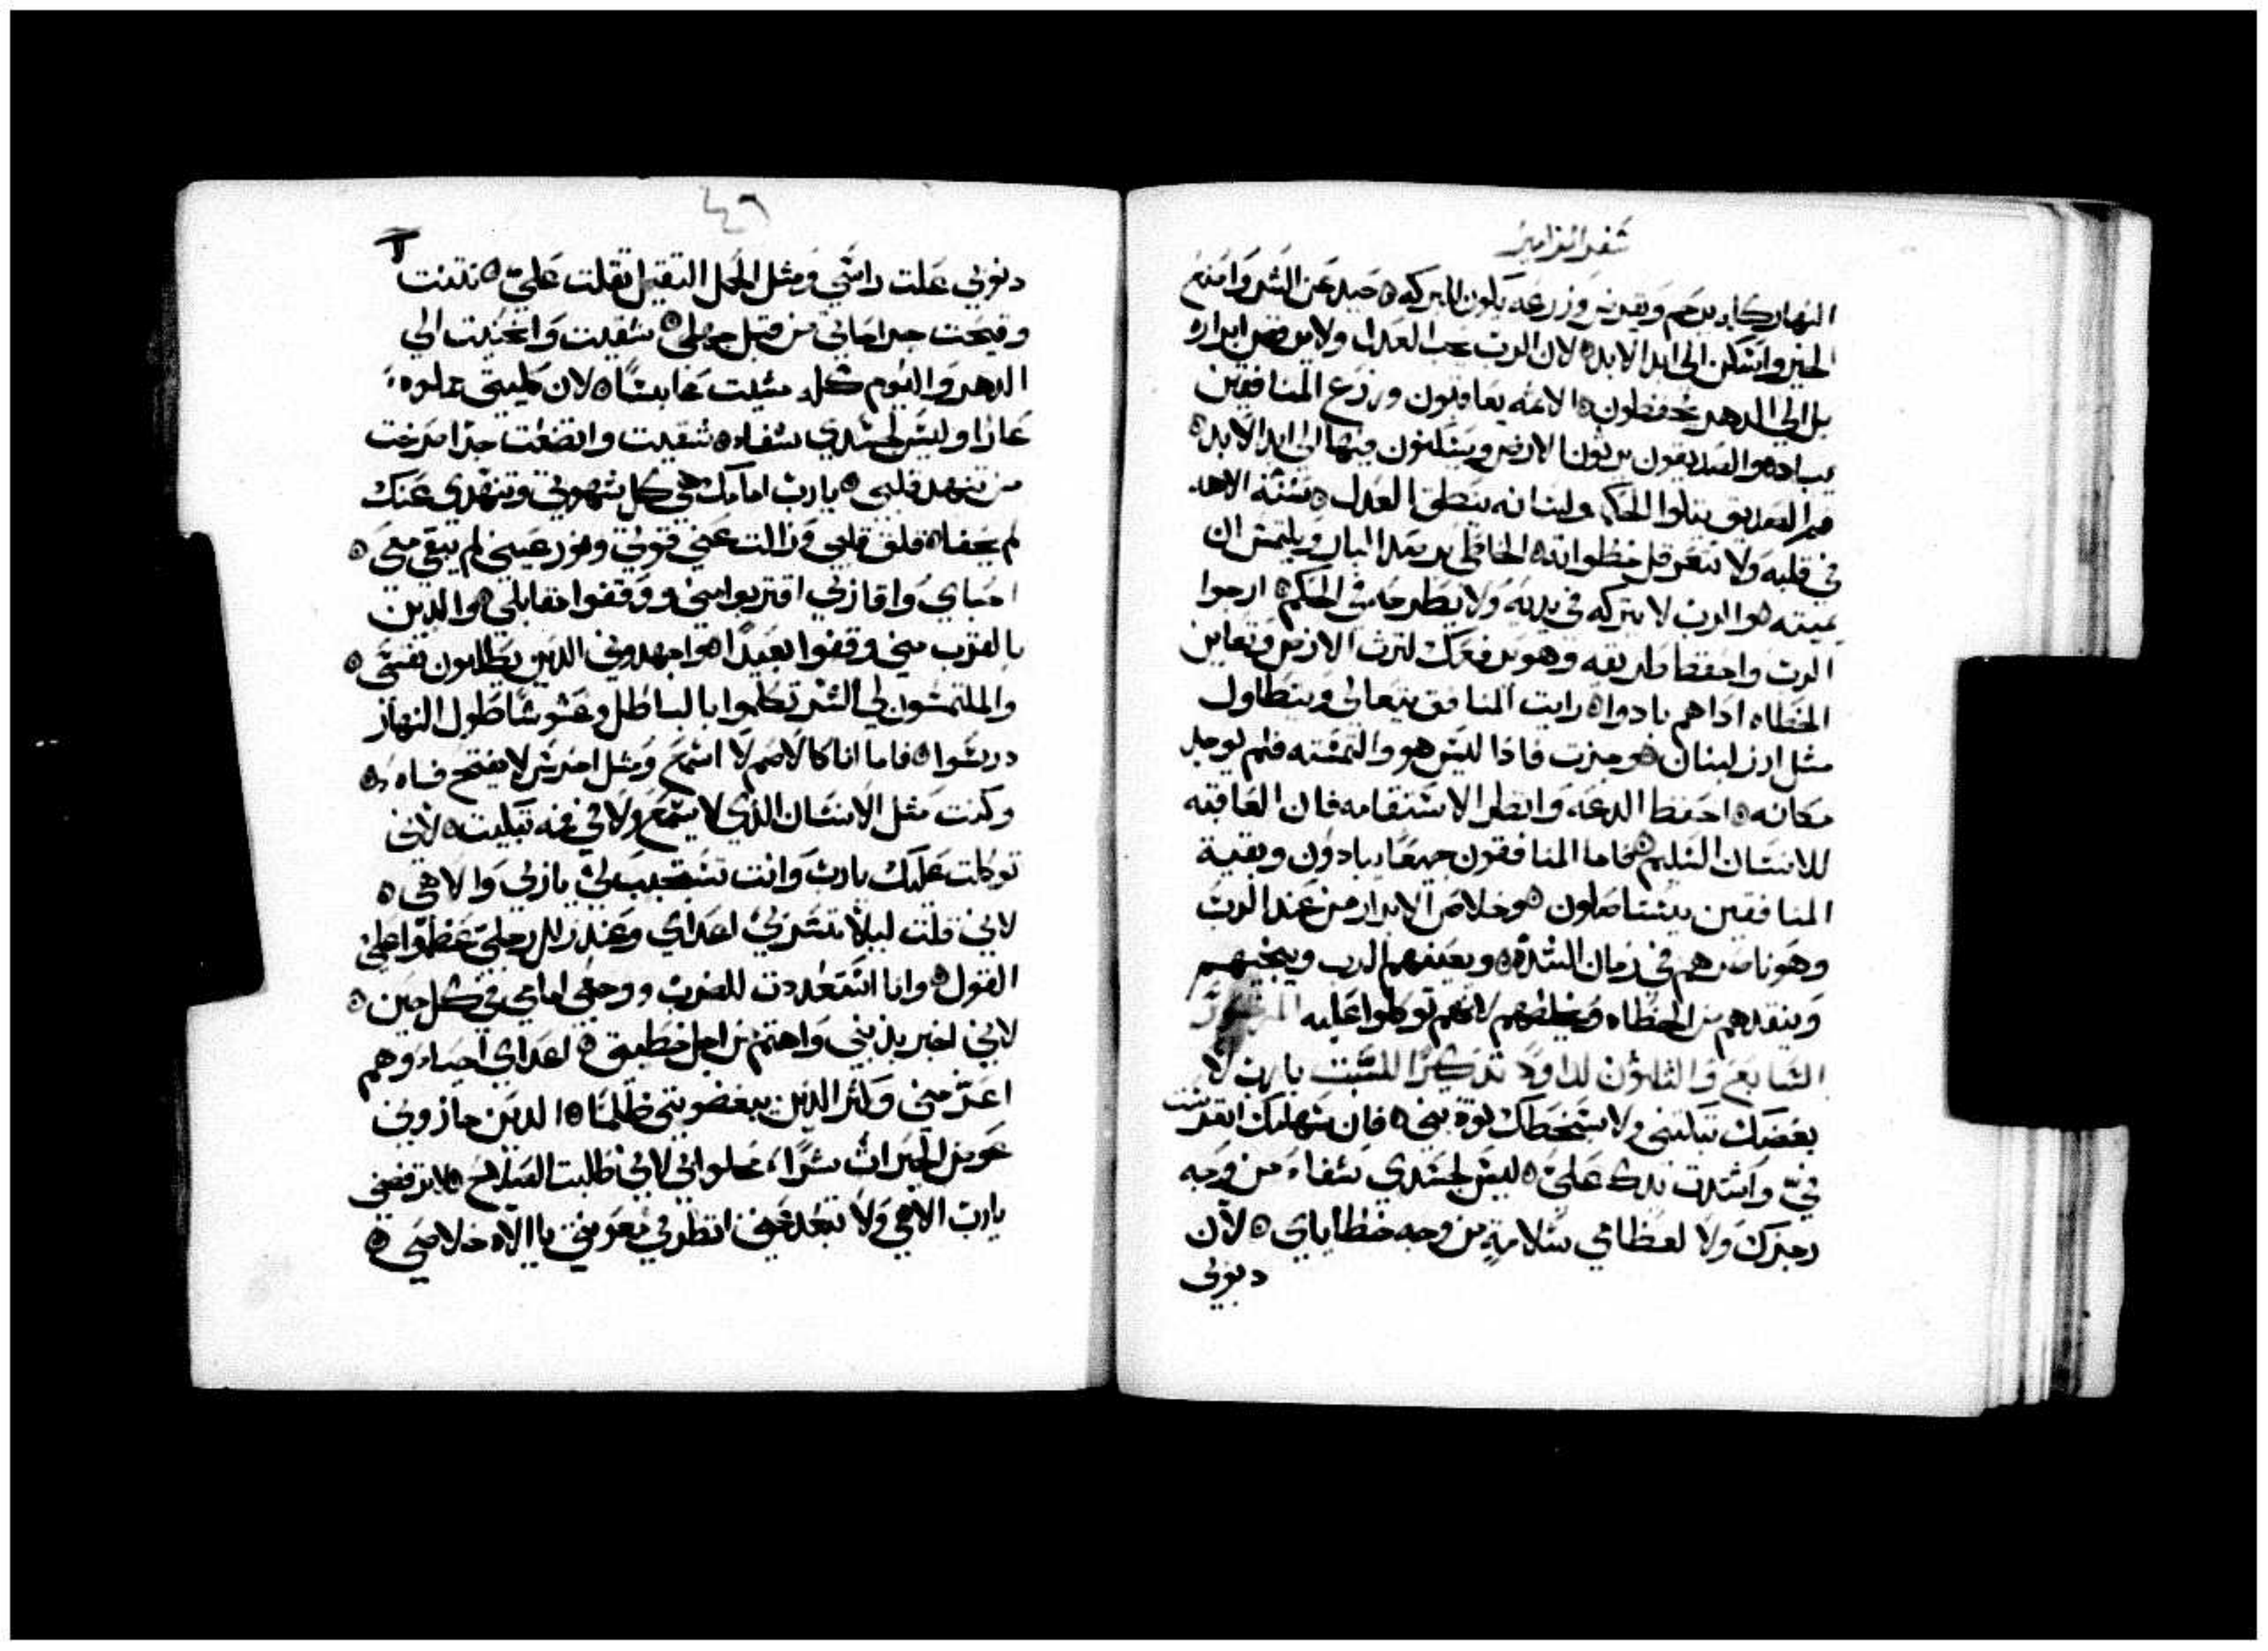 سفر المزامير
النهار كله يرحم ويقرض وزرعه يكون للبركه ۞ حيد عن الشر واصنع
الخير واسكن الى ابد الابد ۞ لان الرب يحب العدل ولا يرفض ابراره
بل الى الدهر يحفظون ۞ الايمه يعاقبون وزرع المنافقين
يباد ۞ والصديقون يرثون الارض ويسكنون فيها الى ابد الابد ۞
فم الصديق يتلوا الحكمه ولسانه ينطق العدل ۞ سنة الاهه
في قلبه ولا تتعرقل خطواته ۞ الخاطي يرصد البار ويلتمس ان
يميته ۞ والرب لا يتركه في يديه ولا يطرحه في الحكم ۞ ارجوا
الرب واحفظ طريقه وهو يرفعك لترث الارض وتعاين
الخطاه اذا هم بادوا ۞ رايت المنافق يتعالى ويتطاول
مثل ارز لبنان ۞ وجزت فاذا ليس هو والتمسته فلم يوجد
مكانه ۞ احفظ الدعه وانظر الاستقامه فان العاقبه
للانسان السليم ۞ فاما المنافقون جميعا يبادون وبقية
المنافقين يستاصلون ۞ وخلاص الابرار من عند الرب
وهو ناصرهم في زمان الشدة ۞ ويعينهم الرب وينجيهم
وينقدهم من الخطاه ويخلصهم لانهم توكلوا عليه المزمور
السابع والثلثون لداود تذكرا للسبت يا رب لا
بغضبك تبكتني ولا بسخطك تودبني ۞ فان سهامك انغرست
فيّ واشتدت يدك عليّ ۞ ليس لجسدي شفاء من وجه
رجزك ولا لعظامي سلامة من وجه خطاياي ۞ لان
دنوبي
٤٦
دنوبي علت راسي ومثل الحمل الثقيل ثقلت عليّ ۞ نتنت
وقيحت جراحاتي من قبل جهلي ۞ شقيت وانحنيت الى
الدهر واليوم كله مشيت عابسًا ۞ لان كليتي مملوه
عارا وليس لجسدي شفاء ۞ شقيت واتضعت جدا صرخت
من تنهد قلبي ۞ يا رب امامك هي كل شهوتي وتنهدي عنك
لم يخفا ۞ قلق قلبي وزالت عني قوتي ونور عيني لم يبقى معي ۞
احباي واقاربي اقتربوا مني ووقفوا مقابلي ۞ والذين
بالقرب مني وقفوا بعيدًا ۞ واجهدوني الدين يطلبون نفسي ۞
والملتمسون لي الشر تكلموا بالباطل وغشوشًا طول النهار
درسوا ۞ فاما انا كالاصم لا اسمع ومثل اخرس لا يفتح فاه ۞
وكنت مثل الانسان الذي لا يسمع ولا في فمه تبكيت ۞ لاني
توكلت عليك يا رب وانت تستجيب لي يا ربي والاهي ۞
لاني قلت ليلا تسر بي اعداي وعند زلل رجلي عظموا علي
القول ۞ وانا استعددت للضرب ووجعي امامي في كل حين ۞
لاني اخبر بذنبي واهتم من اجل خطيتي ۞ اعداي احياء وهم
اعز مني وكثر الذين يبغضونني ظلمًا ۞ الدين جازوني
عوض الخيرات شرًا، محلوا بي لاني طلبت الصلاح ۞ لا ترفضني
يا رب الاهي ولا تبعد عني انظر في معونتي يا الاه خلاصي ۞